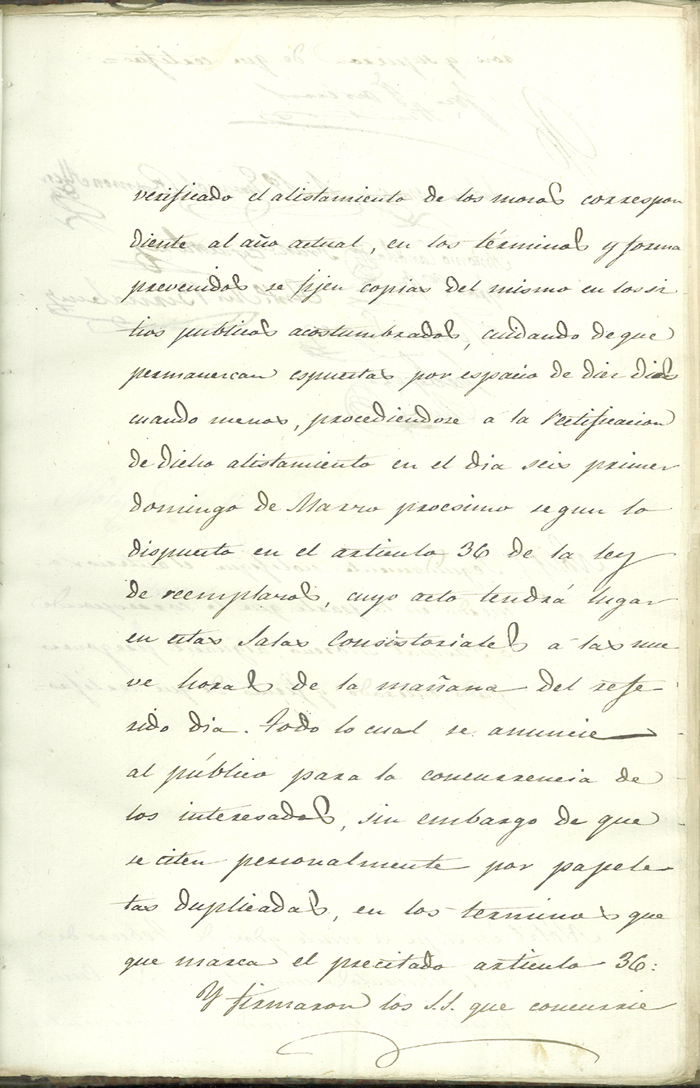 verificado el alistamiento de los mozos correspon
diente al año actual, en los términos y forma
prevenidos se fijen copias del mismo en los si
tios publicos acostumbrados, cuidando de que
permanezcan espuestas por espacio de diez dias
cuando menos, procediendose á la rectificacion
de dicho alistamiento en el dia seis primer
domingo de Marzo procsimo segun lo
dispuesto en el articulo 36 de la ley
de reemplazos, cuyo acto tendrá lugar
en estas Salas Consistoriales á las nue
ve horas de la mañana del refe
rido dia. Todo lo cual se anuncie
al público para la concurrencia de
los interesados, sin embargo de que
se citen personalmente por papele
tas duplicadas, en los terminos que
que marca el precitado articulo 36:
Y firmaron los S.S. que concurrie